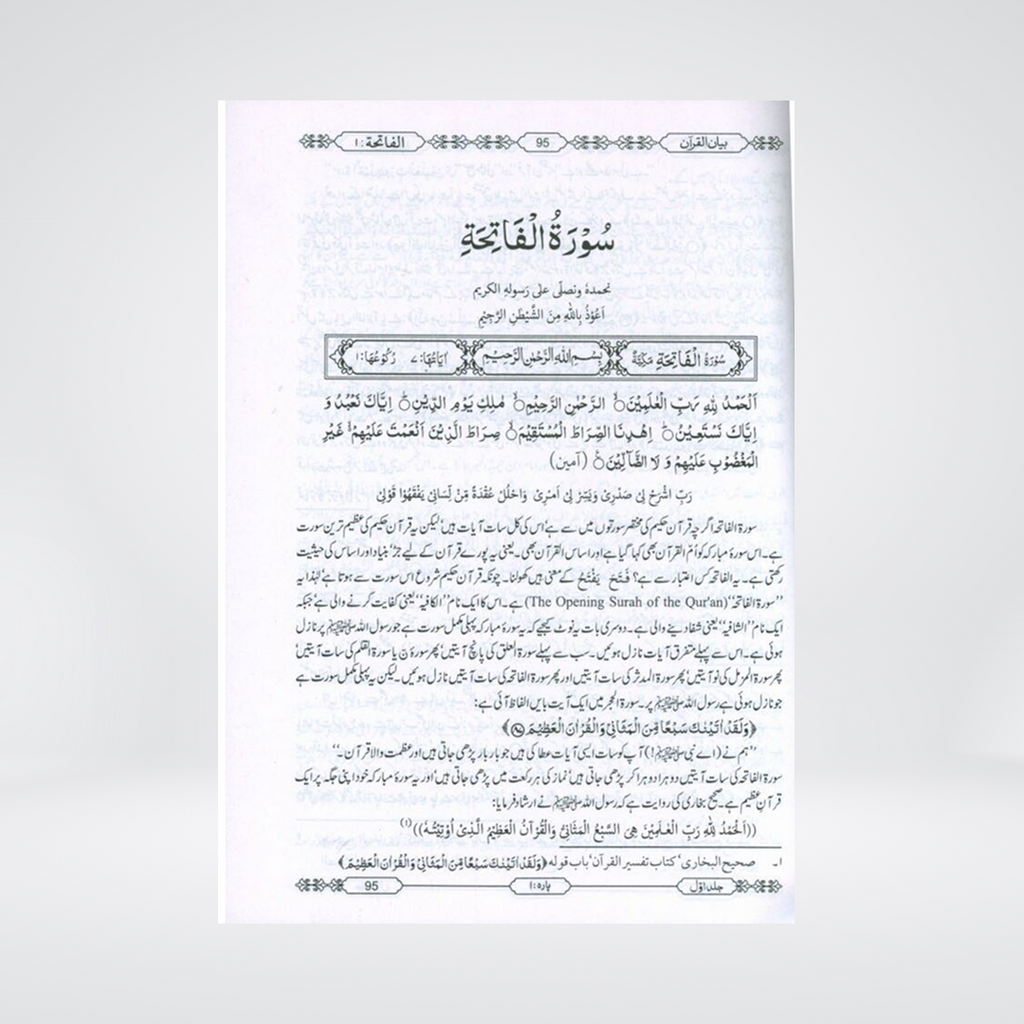 بیان القرآن 95 الفاتحة : ۱
سُوۡرَةُ الۡفَاتِحَةِ
نحمدہٗ ونصلّی علٰی رَسولہِ الکریم
اَعُوۡذُ بِاللّٰهِ مِنَ الشَّيۡطٰنِ الرَّجِيۡمِ
سُوۡرَةُ الۡفَاتِحَةِ مَكِّيَّةٌ بِسۡمِ اللّٰهِ الرَّحۡمٰنِ الرَّحِيۡمِ اٰيَاتُهَا: ۷ رُكُوۡعُهَا: ۱
اَلۡحَمۡدُ لِلّٰهِ رَبِّ الۡعٰلَمِيۡنَ ۙ الرَّحۡمٰنِ الرَّحِيۡمِ ۙ مٰلِكِ يَوۡمِ الدِّيۡنِ ؕ اِيَّاكَ نَعۡبُدُ وَ
اِيَّاكَ نَسۡتَعِيۡنُ ؕ اِهۡدِنَا الصِّرَاطَ الۡمُسۡتَقِيۡمَ ۙ صِرَاطَ الَّذِيۡنَ اَنۡعَمۡتَ عَلَيۡهِمۡ ۙ غَيۡرِ
الۡمَغۡضُوۡبِ عَلَيۡهِمۡ وَ لَا الضَّآلِّيۡنَ ؑ (آمین)
رَبِّ اشۡرَحۡ لِیۡ صَدۡرِیۡ وَيَسِّرۡ لِیۡ اَمۡرِیۡ وَاحۡلُلۡ عُقۡدَةً مِّنۡ لِّسَانِیۡ يَفۡقَهُوۡا قَوۡلِیۡ
سورۃ الفاتحہ اگرچہ قرآن حکیم کی مختصر سورتوں میں سے ہے‘ اس کی کل سات آیات ہیں‘ لیکن یہ قرآن حکیم کی عظیم ترین سورت
ہے۔ اس سورۂ مبارکہ کو اُمّ القرآن بھی کہا گیا ہے اور اساس القرآن بھی۔ یعنی یہ پورے قرآن کے لیے جڑ‘ بنیاد اور اساس کی حیثیت
رکھتی ہے۔ یہ الفاتحہ کس اعتبار سے ہے؟ فَتَحَ يَفۡتَحُ کے معنی ہیں کھولنا۔ چونکہ قرآن حکیم شروع اس سورت سے ہوتا ہے‘ لہٰذا یہ
’’سورۃ الفاتحہ‘‘ (The Opening Surah of the Qur'an) ہے۔ اس کا ایک نام ’’الکافیہ‘‘ یعنی کفایت کرنے والی ہے‘ جبکہ
ایک نام ’’الشافیہ‘‘ یعنی شفا دینے والی ہے۔ دوسری بات یہ نوٹ کیجیے کہ یہ سورۂ مبارکہ پہلی مکمل سورت ہے جو رسول اللہ ﷺ پر نازل
ہوئی ہے۔ اس سے پہلے متفرق آیات نازل ہوئیں۔ سب سے پہلے سورۃ العلق کی پانچ آیتیں‘ پھر سورۃ نٓ یا سورۃ القلم کی سات آیتیں‘
پھر سورۃ المزمل کی نو آیتیں‘ پھر سورۃ المدثر کی سات آیتیں اور پھر سورۃ الفاتحہ کی سات آیتیں نازل ہوئیں۔ لیکن یہ پہلی مکمل سورت ہے
جو نازل ہوئی ہے رسول اللہ ﷺ پر۔ سورۃ الحجر میں ایک آیت بایں الفاظ آئی ہے:
﴿وَلَقَدۡ اٰتَيۡنٰكَ سَبۡعًا مِّنَ الۡمَثَانِیۡ وَالۡقُرۡاٰنَ الۡعَظِيۡمَ ۝۸۷﴾
’’ہم نے (اے نبی ﷺ!) آپ کو سات ایسی آیات عطا کی ہیں جو بار بار پڑھی جاتی ہیں اور عظمت والا قرآن۔‘‘
سورۃ الفاتحہ کی سات آیتیں دوہرا دوہرا کر پڑھی جاتی ہیں‘ نماز کی ہر رکعت میں پڑھی جاتی ہیں‘ اور یہ سورۂ مبارکہ خود اپنی جگہ پر ایک
قرآنِ عظیم ہے۔ صحیح بخاری کی روایت ہے کہ رسول اللہ ﷺ نے ارشاد فرمایا:
((اَلۡحَمۡدُ لِلّٰهِ رَبِّ الۡعٰلَمِيۡنَ هِیَ السَّبۡعُ الۡمَثَانِیۡ وَالۡقُرۡآنُ الۡعَظِيۡمُ الَّذِیۡ اُوۡتِيۡتُهٗ)) (۱)
۱۔ صحیح البخاری‘ کتاب تفسیر القرآن‘ باب قولہ ﴿وَلَقَدۡ اٰتَيۡنٰكَ سَبۡعًا مِّنَ الۡمَثَانِیۡ وَالۡقُرۡاٰنَ الۡعَظِيۡمَ﴾
جلد اوّل پارہ : ۱ 95